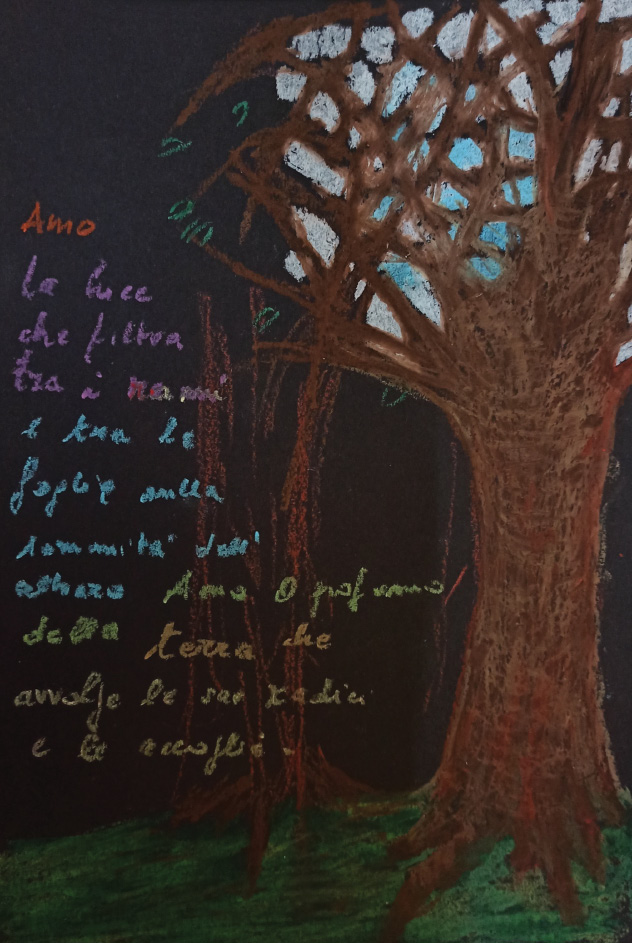 Amo
la luce
che filtra
tra i rami
e tra le
foglie sulla
sommità dell'
albero Amo il profumo
della terra che
avvolge le sue radici
e le accoglie.